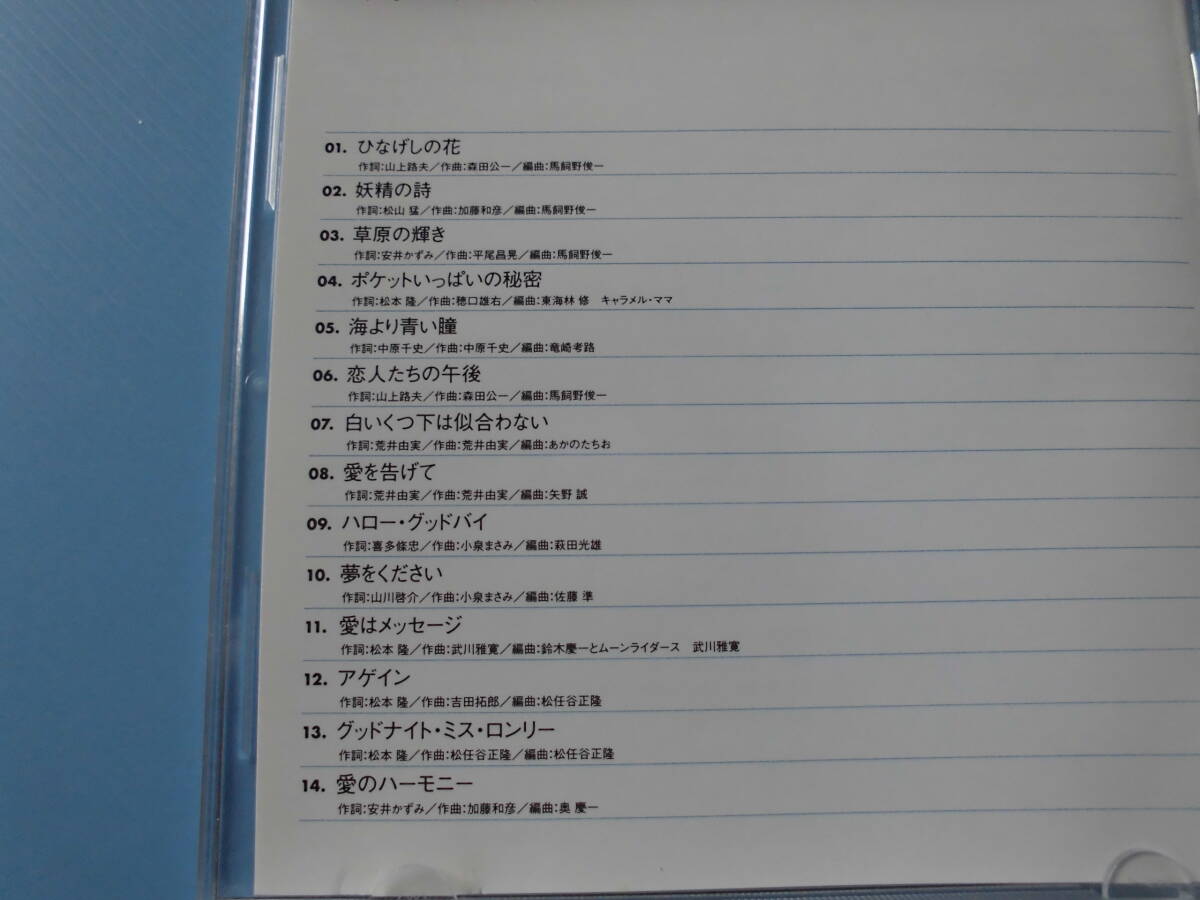 01. ひなげしの花
作詞:山上路夫／作曲:森田公一／編曲:馬飼野俊一
02. 妖精の詩
作詞:松山 猛／作曲:加藤和彦／編曲:馬飼野俊一
03. 草原の輝き
作詞:安井かずみ／作曲:平尾昌晃／編曲:馬飼野俊一
04. ポケットいっぱいの秘密
作詞:松本 隆／作曲:穂口雄右／編曲:東海林 修　キャラメル・ママ
05. 海より青い瞳
作詞:中原千史／作曲:中原千史／編曲:竜崎考路
06. 恋人たちの午後
作詞:山上路夫／作曲:森田公一／編曲:馬飼野俊一
07. 白いくつ下は似合わない
作詞:荒井由実／作曲:荒井由実／編曲:あかのたちお
08. 愛を告げて
作詞:荒井由実／作曲:荒井由実／編曲:矢野 誠
09. ハロー・グッドバイ
作詞:喜多條忠／作曲:小泉まさみ／編曲:萩田光雄
10. 夢をください
作詞:山川啓介／作曲:小泉まさみ／編曲:佐藤 準
11. 愛はメッセージ
作詞:松本 隆／作曲:武川雅寛／編曲:鈴木慶一とムーンライダース　武川雅寛
12. アゲイン
作詞:松本 隆／作曲:吉田拓郎／編曲:松任谷正隆
13. グッドナイト・ミス・ロンリー
作詞:松本 隆／作曲:松任谷正隆／編曲:松任谷正隆
14. 愛のハーモニー
作詞:安井かずみ／作曲:加藤和彦／編曲:奥 慶一